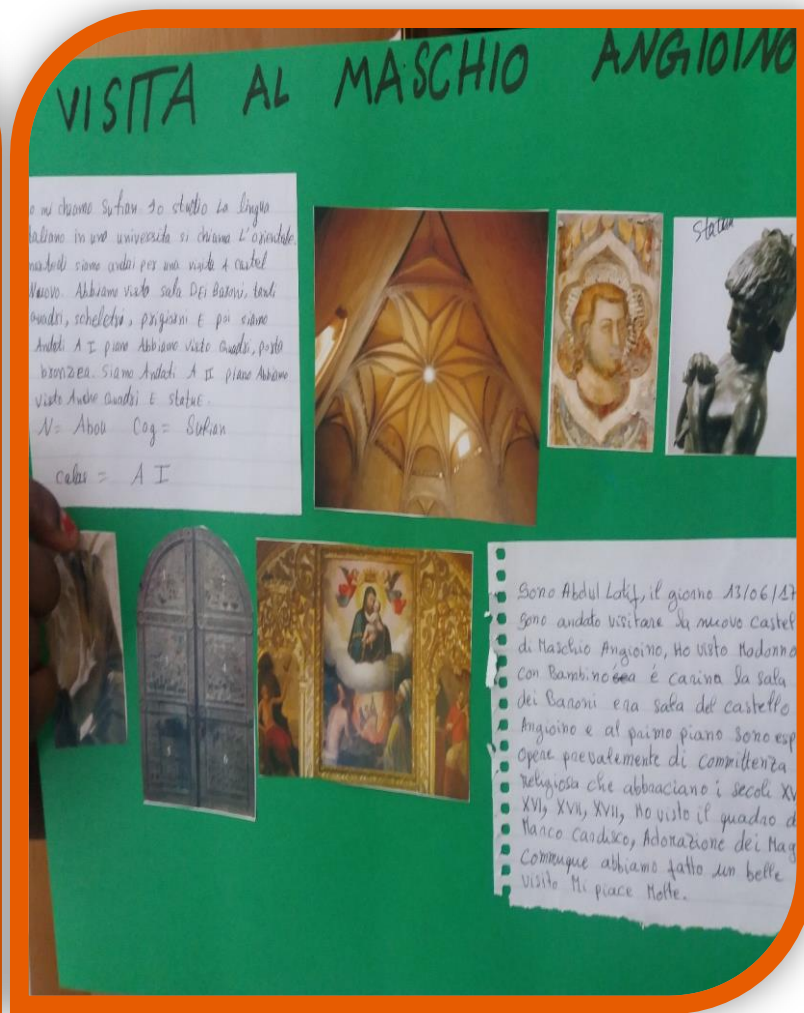 VISITA AL MASCHIO ANGIOINO
o mi chiamo Sufian Io studio La lingua
italiano in una università si chiama L'orientale.
siamo andai per una visita A castel
Nuovo. Abbiamo visto sala DEi Baroni, tanti
Quadri, scheletri, prigioni E poi siamo
Andati A I piano Abbiamo visto Quadri, porta
bronzea. Siamo Andati A II piano Abbiamo
visto Anche Quadri E statue.
N= Abou Cog= Sufian
A I
Statua
Sono Abdul Latif, il giorno 13/06/17
sono andato visitare la nuovo Castel
di Maschio Angioino, Ho visto Madonna
con Bambino é carina la sala
dei Baroni era sala del castello
Angioino e al primo piano sono esp
Opere prevalemente di committenza
Religiosa che abbraciano i secoli XV
XVI, XVII, XVII, Ho visto il quadro d
Marco Cardisco, Adorazione dei Mag
Commuque abbiamo fatto un belle
visito Mi piace Molte.